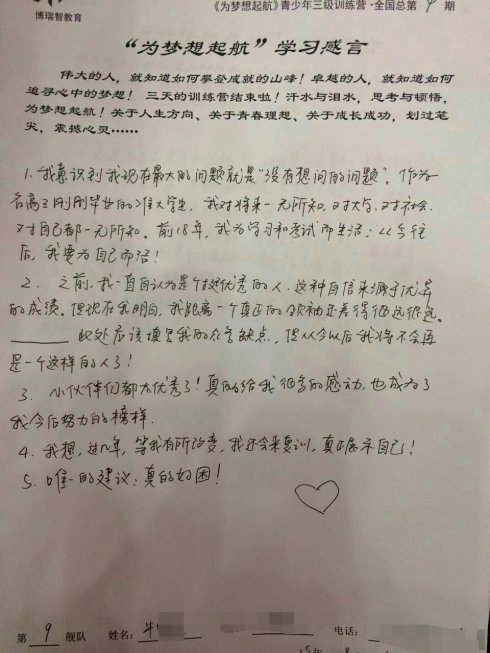 博瑞智教育
《为梦想起航》青少年三级训练营·全国总第 9 期
“为梦想起航”学习感言
伟大的人，就知道如何攀登成就的山峰！卓越的人，就知道如何
追寻心中的梦想！ 三天的训练营结束啦！汗水与泪水，思考与顿悟，
为梦想起航！关于人生方向、关于青春理想、关于成长成功，划过笔
尖，震撼心灵……
1. 我意识到我现在最大的问题就是“没有想问的问题”。作为
名高三刚刚毕业的准大学生，我对将来一无所知，对大学、对社会、
对自己都一无所知。前18年，我为学习和考试而生活；从今往
后，我要为自己而活！
2. 之前，我一直自认为是个挺优秀的人，这种自信来源于优异
的成绩。但现在我明白，我距离一个真正的领袖还差得很远很远。
此处应该填写我的众多缺点，但从今以后我将不会再
是一个这样的人了！
3. 小伙伴们都太优秀了！真的给我很多的感动，也成为了
我今后努力的榜样。
4. 我想，过几年，等我有所改变，我还会来复训，真正展示自己！
5. 唯一的建议：真的好困！
第 9 舰队 姓名：牛 电话：